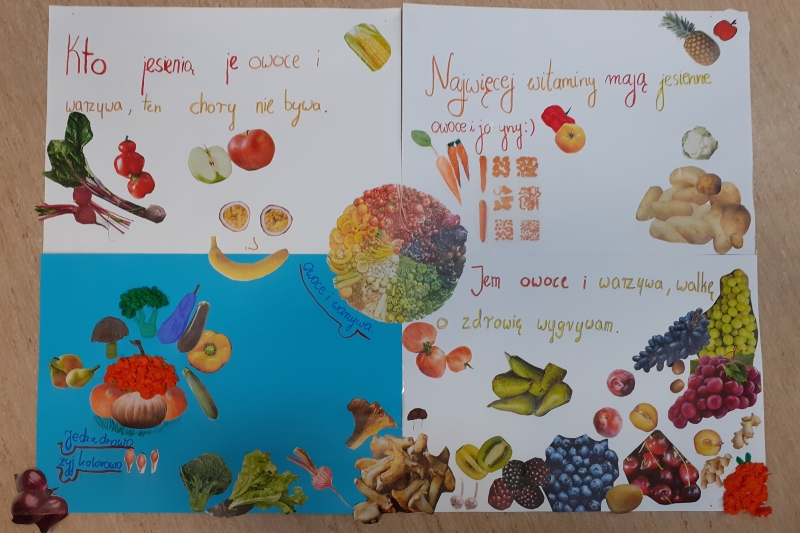 Kto jesienią je owoce i
warzywa, ten chory nie bywa.
Najwięcej witaminy mają jesienne
owoce i ja yny:)
owoce i warzywa.
Jem owoce i warzywa, walkę
o zdrowię wygrywam.
Jedz zdrowo
żyj kolorowo